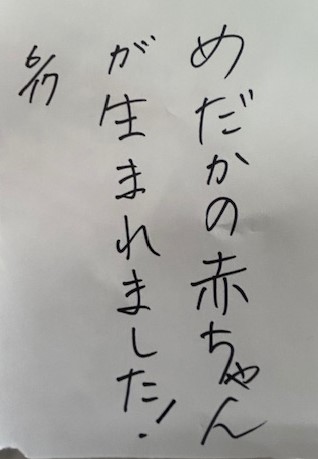 めだかの赤ちゃん
が生まれました!
6/17